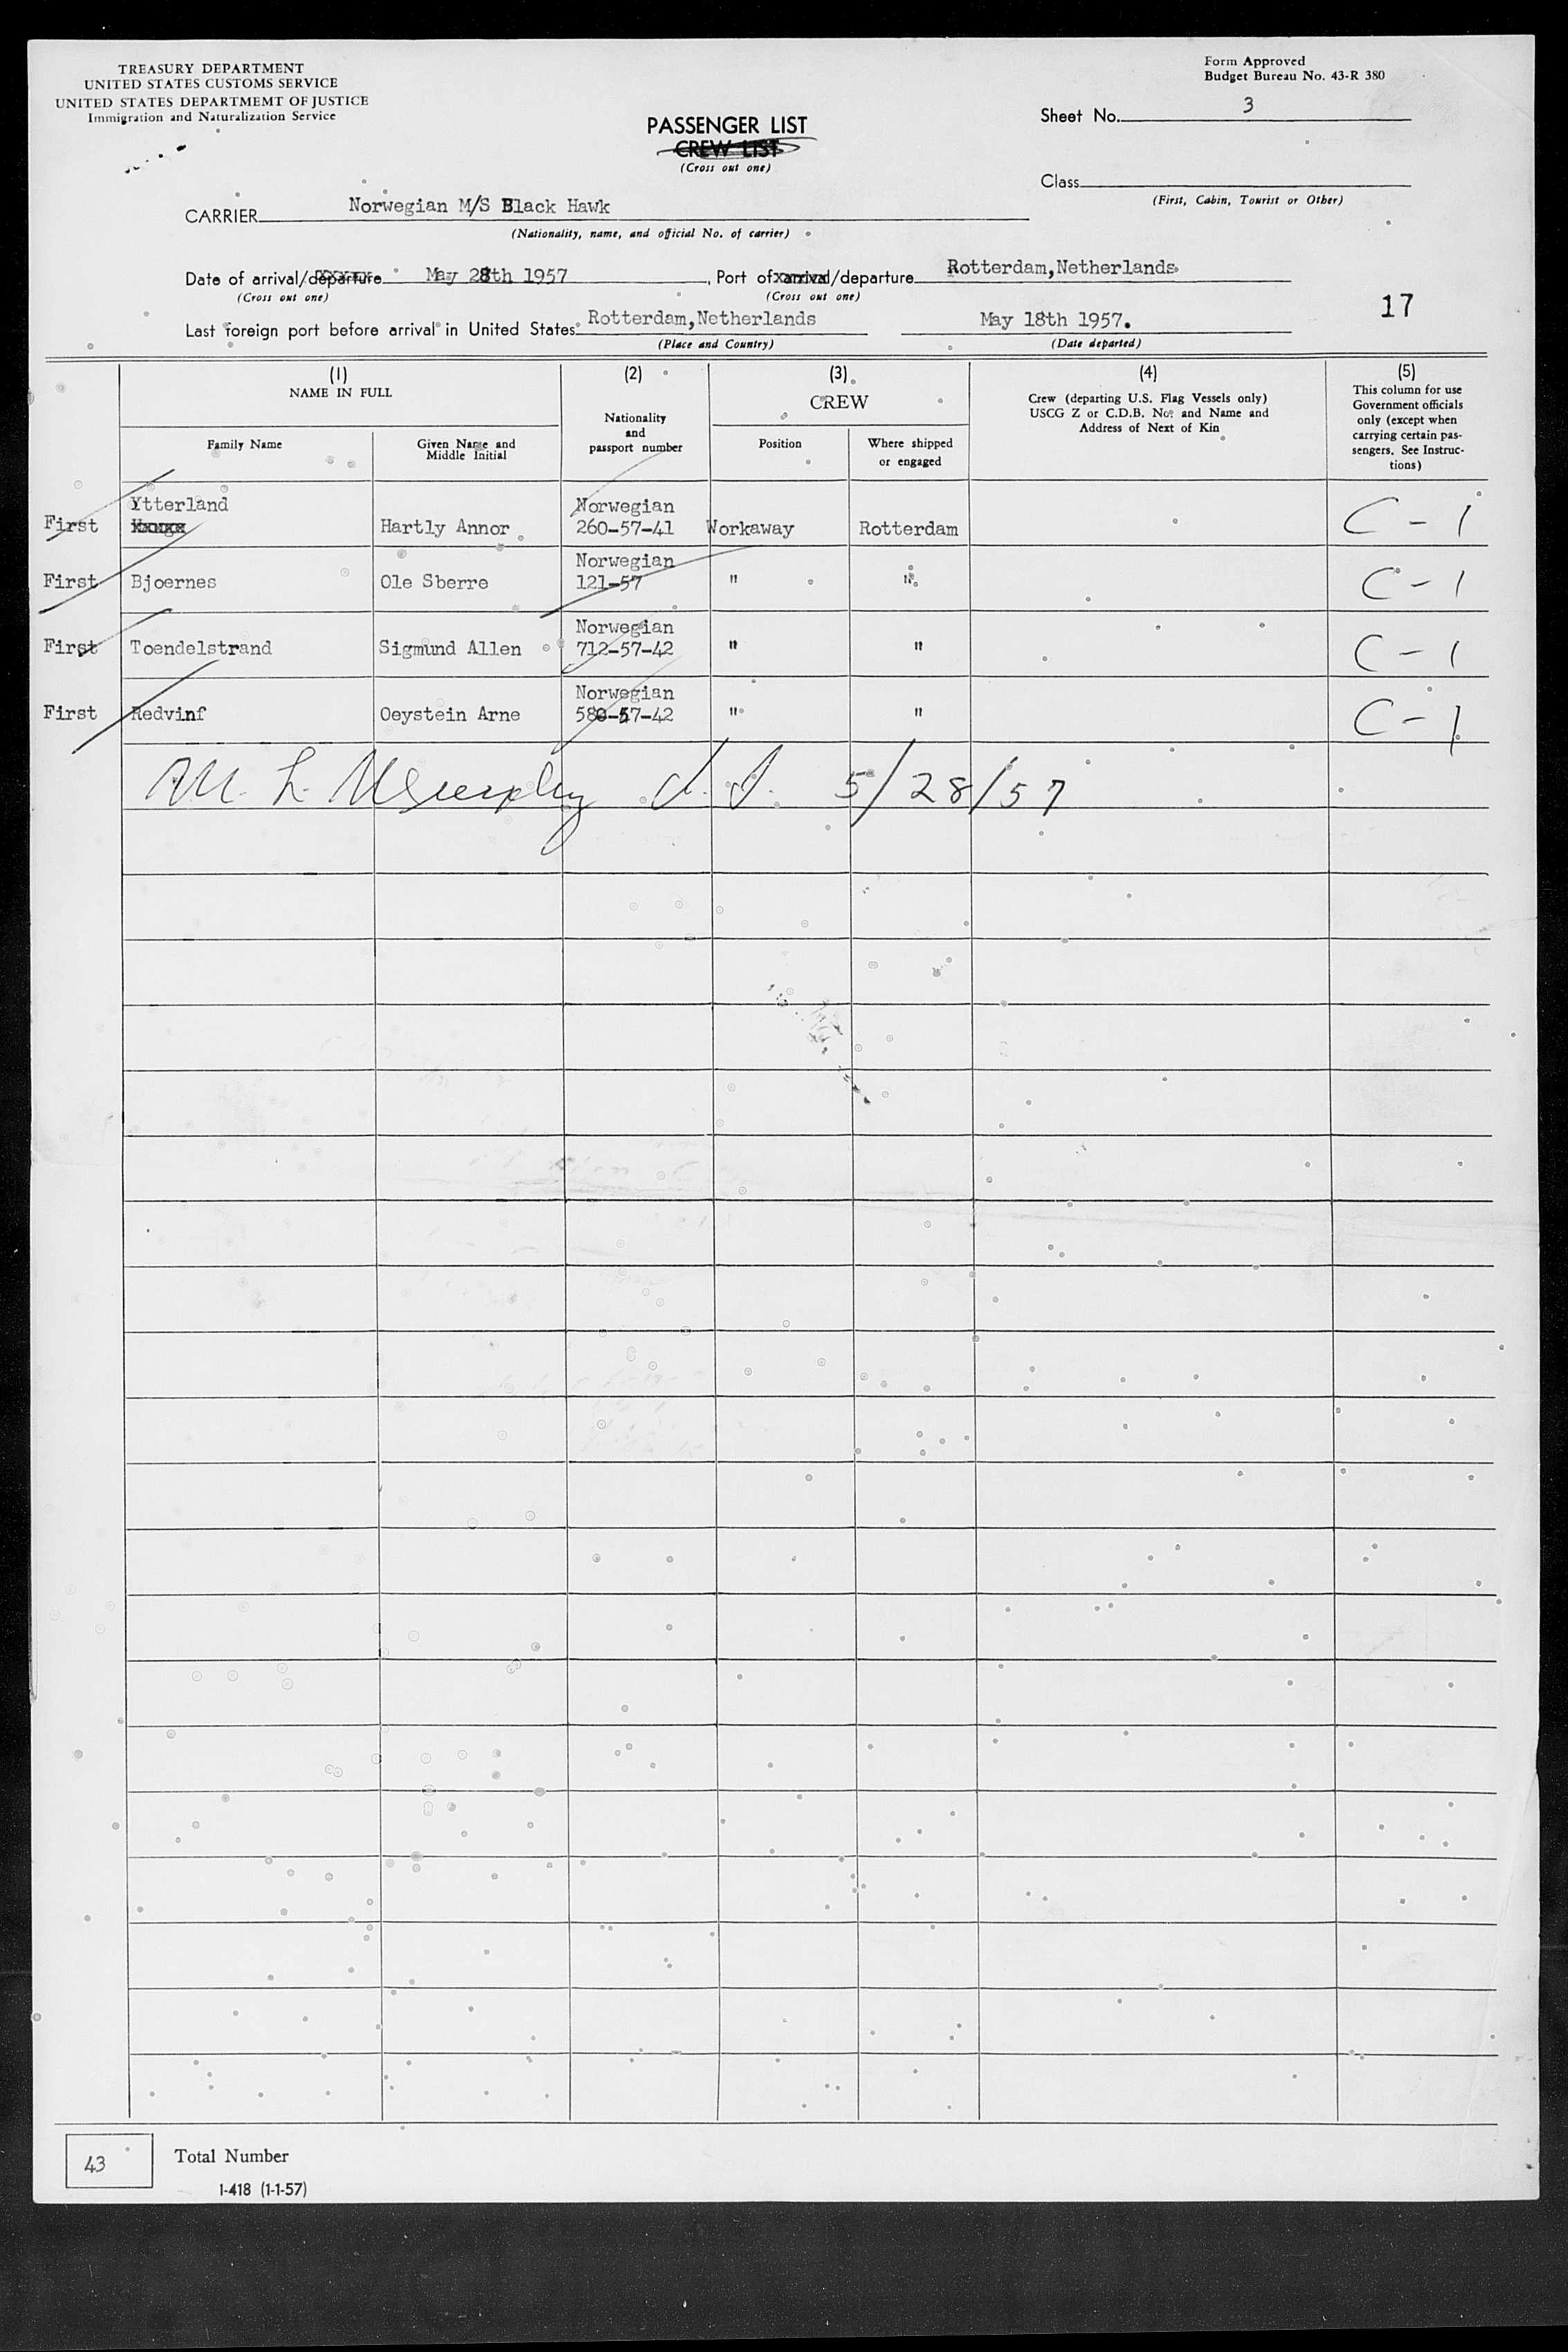 TREASURY DEPARTMENT
UNITED STATES CUSTOMS SERVICE
UNITED STATES DEPARTMEMT OF JUSTICE
Immigration and Naturalization Service
Form Approved
Budget Bureau No. 43-R 380
Sheet No. 3
PASSENGER LIST
CREW LIST
(Cross out one)
Class
(First, Cabin, Tourist or Other)
CARRIER Norwegian M/S Black Hawk
(Nationality, name, and official No. of carrier)
Date of arrival/departure May 28th 1957, Port of arrival/departure Rotterdam,Netherlands
(Cross out one) (Cross out one)
17
Last foreign port before arrival in United States Rotterdam,Netherlands May 18th 1957.
(Place and Country) (Date departed)
(1) (2) (3) (4) (5)
NAME IN FULL
Family Name
Given Name and
Middle Initial
Nationality
and
passport number
CREW
Position
Where shipped
or engaged
Crew (departing U.S. Flag Vessels only)
USCG Z or C.D.B. No. and Name and
Address of Next of Kin
This column for use
Government officials
only (except when
carrying certain pas-
sengers. See Instruc-
tions)
Ytterland Norwegian
First Hartly Annor 260-57-41 Workaway Rotterdam C-1
Norwegian
First Bjoernes Ole Sberre 121-57 " " C-1
Norwegian
First Toendelstrand Sigmund Allen 712-57-42 " " C-1
Norwegian
First Redvinf Oeystein Arne 580-57-42 " " C-1
M. L. Murphy 5/28/57
43 Total Number
I-418 (1-1-57)